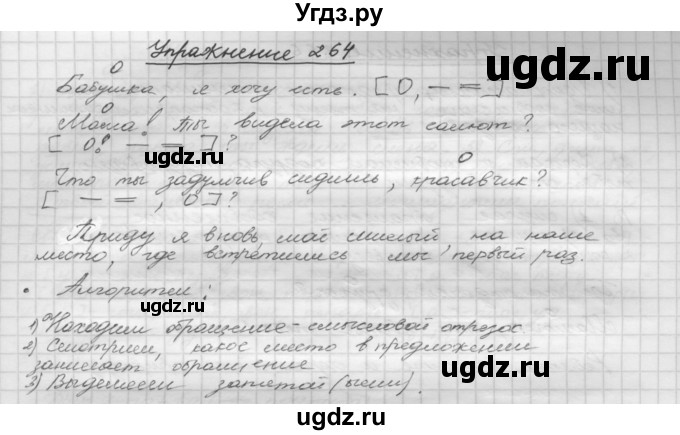 Угдз.ру
Упражнение 264
ugdz.ru
О
Бабушка, я хочу есть. [О, — =]
О
Мама! Ты видела этот салют?
[О! — =]?
О
Что ты задумчив сидишь, красавчик?
[ — =, О]?
ugdz.ru
Приду я вновь, мой милый, на наше
место, где встретились мы первый раз.
ugdz.ru
• Алгоритм:
ugdz.ru
1) Находим обращение - смысловой отрезок
2) Смотрим, какое место в предложении
занимает обращение
3) Выделяем запятой (ыми).
ugdz.ru
ugdz.ru